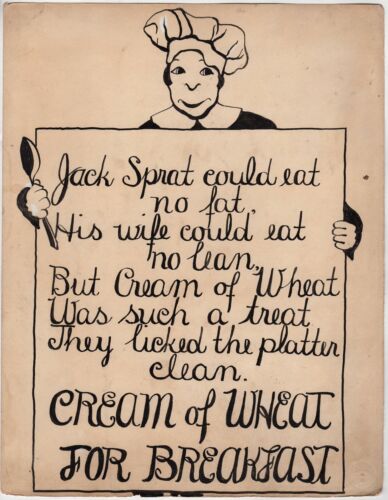 Jack Sprat could eat
no fat,
His wife could eat
no lean,
But Cream of Wheat
Was such a treat
They licked the platter
clean.
CREAM of WHEAT
FOR BREAKFAST